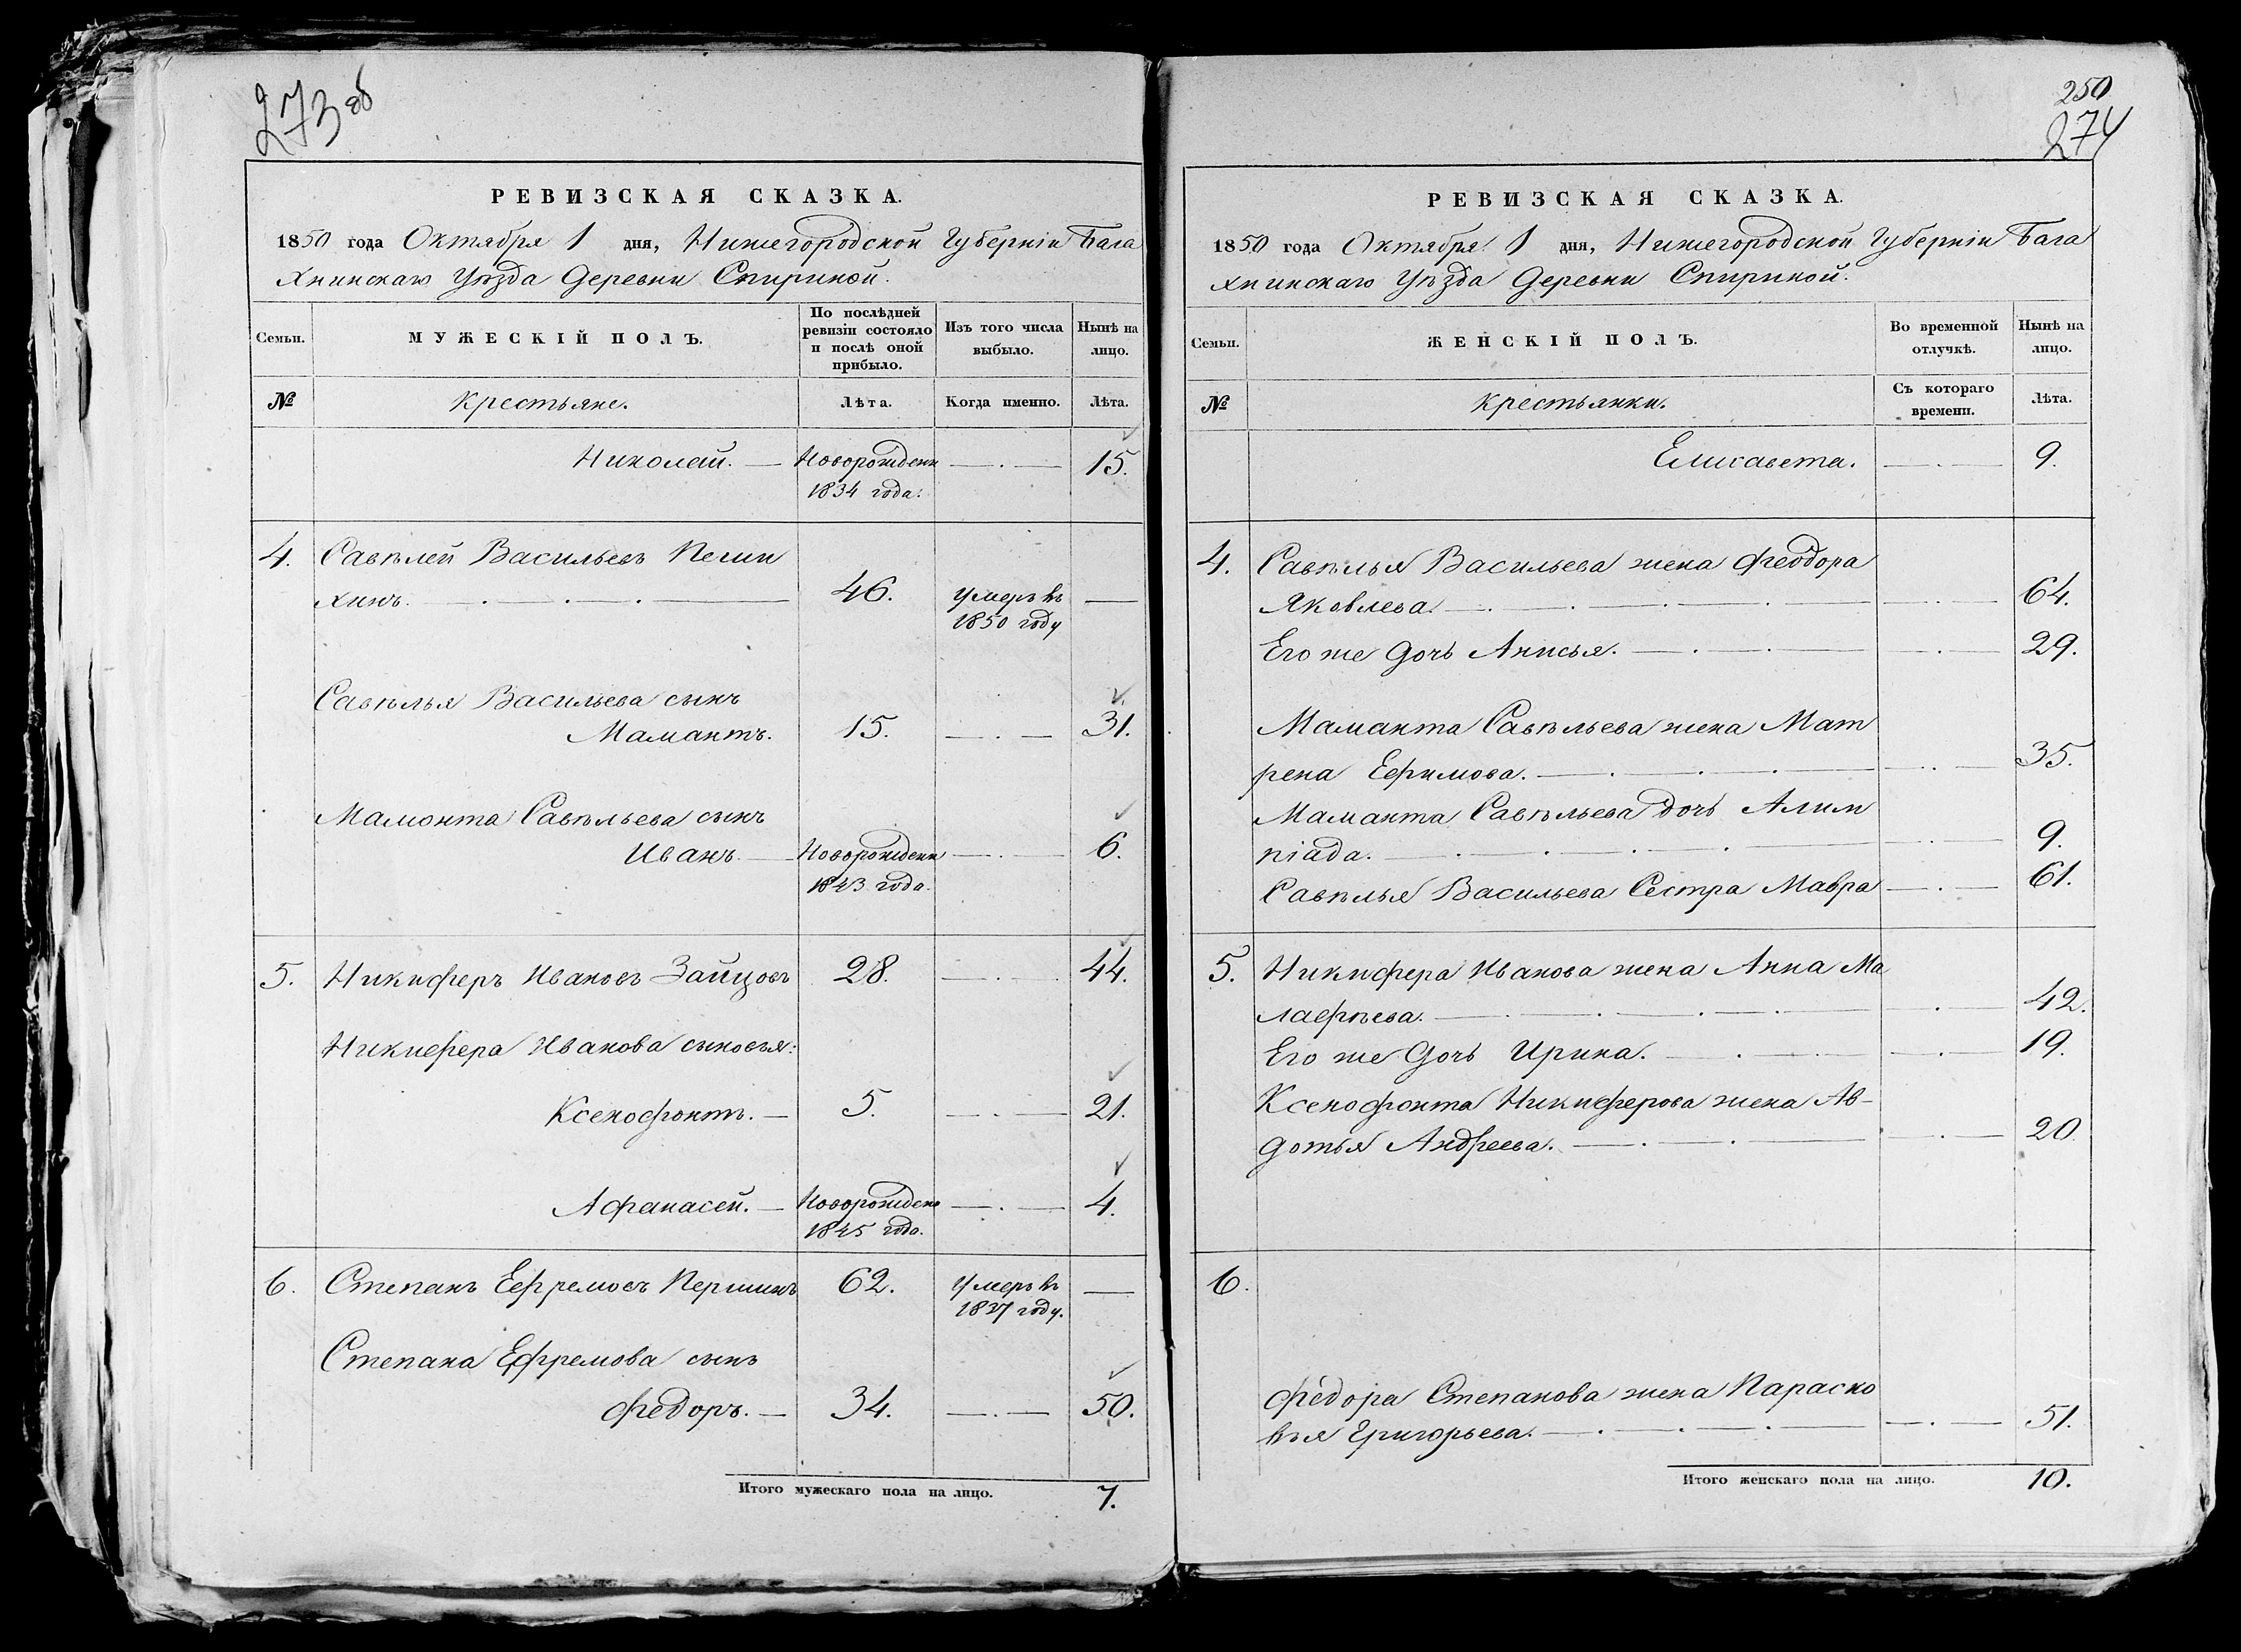 273 об
РЕВИЗСКАЯ СКАЗКА.
1850 года Октября 1 дня, Нижегородской Губерніи Бала
хнинскаго Уѣзда Деревни Спириной.
Семьи.
МУЖЕСКІЙ ПОЛЪ.
По послѣдней ревизіи состояло и послѣ оной прибыло.
Изъ того числа выбыло.
Нынѣ на лицо.
№
Крестьяне.
Лѣта.
Когда именно.
Лѣта.
Николай. Новорожденн 15.
1834 года.
4. Савѣлей Васильевъ
хинъ. 46. Умеръ въ
1850 году
Савѣлья Васильева сынъ
Мамантъ. 15. 31.
Мамонта Савѣльева сынъ
Иванъ Новорожденн 6.
1843 года.
5. Никиферъ Ивановъ Зайцовъ 28. 44.
Никифера Иванова сыновья:
Ксенофонтъ. 5. 21.
Афанасей. Новорожден 4.
1845 года.
6. Степанъ Ефремовъ Першинъ 62. Умеръ въ
1837 году.
Степана Ефремова сынъ
Федоръ. 34. 50.
Итого мужескаго пола на лицо. 7.
250
274
РЕВИЗСКАЯ СКАЗКА.
1850 года Октября 1 дня, Нижегородской Губерніи Бала
хнинскаго Уѣзда Деревни Спириной.
Семьи.
ЖЕНСКІЙ ПОЛЪ.
Во временной отлучкѣ.
Нынѣ на лицо.
№
Крестьянки.
Съ котораго времени.
Лѣта.
Елисавета. 9.
4. Савѣлья Васильева жена Феодора
Яковлева. 64.
Его же дочь Анисья. 29.
Маманта Савѣльева жена Мат
рена Ефимова. 35.
Маманта Савѣльева дочь Алим
піада. 9.
Савѣлья Васильева Сестра Мавра 61.
5. Никифера Иванова жена Анна Ма
лафѣева. 42.
Его же дочь Ирина. 19.
Ксенофонта Никиферова жена Ав-
дотья Андреева. 20.
6.
Федора Степанова жена Параско
вья Григорьева. 51.
Итого женскаго пола на лицо. 10.